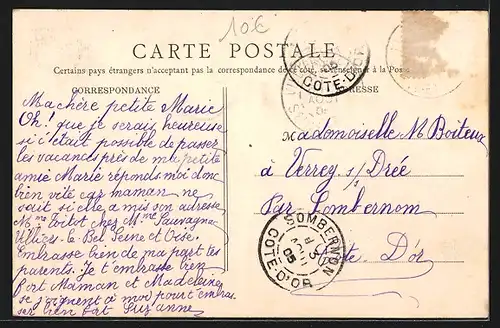 10€
CARTE POSTALE
Certains pays étrangers n'acceptant pas la correspondance de ce côté, se renseigner à la Poste
CORRESPONDANCE
Ma chère petite Marie
Oh! que je serais heureuse
si c'était possible de passer
les vacances près de ma petite
amie Marie réponds moi donc
bien vite car maman ne
sait si elle a mis son adresse
Mme Toitot chez Mme Sauvagna
Villiers-le Bel Seine et Oise.
Embrasse bien de ma part tes
parents. Je t'embrasse bien
fort Maman et Madeleine
se joignent à moi pour t'embras
ser bien fort Suzanne
ADRESSE
Mademoiselle M Boiteux
à Verrey s/s Drée
Par Sombernon
Côte-D'or
COTE-D'OR
AOUT
SOMBERNON
COTE-D'OR